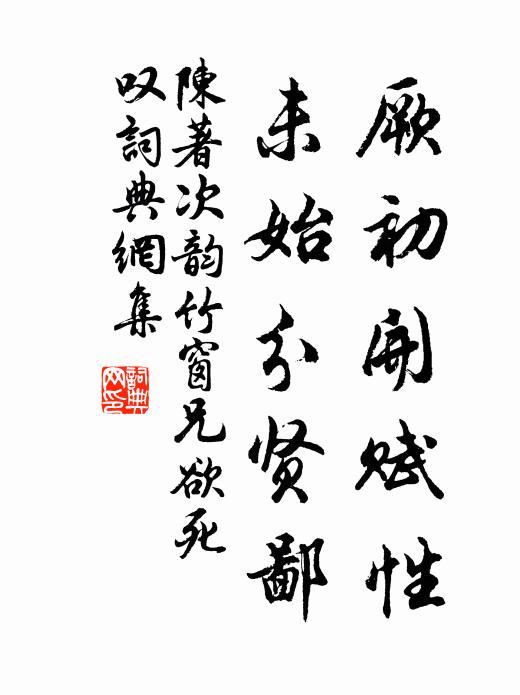 厥初開赋性
未始分贤鄙
陳著次韵竹窗兄欲死
叹詞典網集
詞典
网印